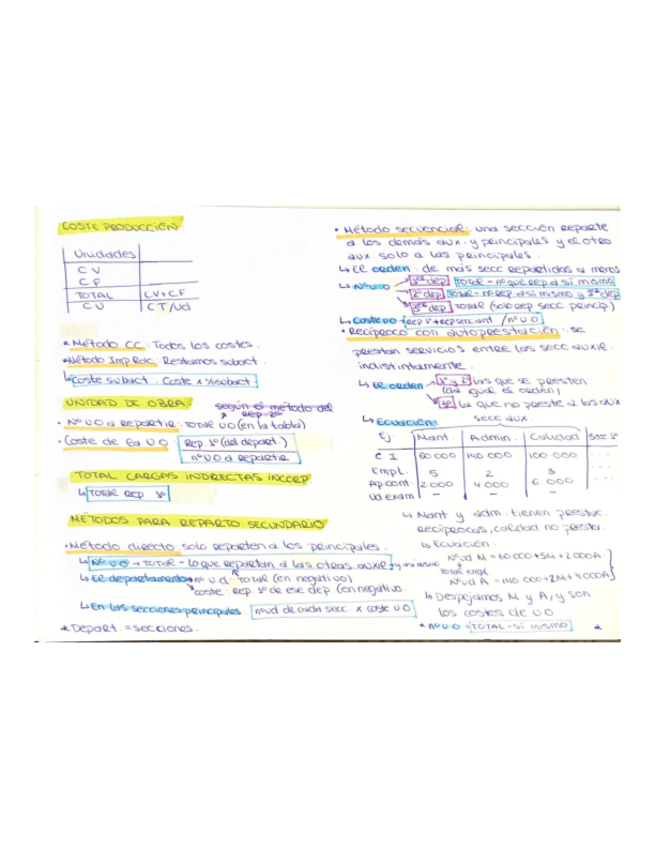 COSTE PRODUCCIÓN:
Unidades
CV
CF
TOTAL CV+CF
CU CT/Ud
* Método CC: Todos los costes.
* Método Imp Rac: Restamos subact.
↳ Coste subact: Coste x %subact.
UNIDAD DE OBRA
según el método del Rep 2º
• Nº UO a repartir: TOTAL UO (en la tabla)
• Coste de la UO: Rep. 1º (del depart.)
nº UO a repartir
TOTAL CARGAS INDIRECTAS INCORP.
↳ TOTAL REP 1º
MÉTODOS PARA REPARTO SECUNDARIO
• Método directo: solo reparten a los principales.
↳ Nº UO → TOTAL - lo que reparten a las otras auxil. y
↳ El departamento → nº Ud: TOTAL (en negativo)
coste: Rep. 1º de ese dep (en negativo.
↳ En las secciones principales: nº ud de cada secc. x coste UO
* Depart. = secciones.
• Método secuencial: una sección reparte
a los demás aux. y principales y el otro
aux. solo a las principales.
↳ El orden: de más secc repartidos a menos
↳ Nº UO 1er dep TOTAL - nº que rep a sí mismo
2º dep TOTAL - nº rep a sí mismo y 1er dep
3er dep TOTAL (solo rep secc princip)
↳ Coste UO: Rep 1º + Rep secc ant / nº UO
• Recíproco con autoprestación: se
prestan servicios entre las secc. auxil.
indistintamente.
↳ El orden 1º y 2º las que se presten
(da igual el orden)
3º la que no preste a las aux
↳ Ecuación: secc aux.
Ej: Mant. Admin. Calidad Secc 1º
C I 60 000 140 000 100.000 ...
Empl. 5 2 3 ...
Ap cont. 2 000 4 000 6.000
Ud exam - - -
↳ Mant y adm. tienen prestac.
recíprocas, calidad no presta.
↳ Ecuación:
Nº Ud M = 60 000 + 5M + 2 000A
Total empl.
Nº Ud A = 140 000 + 2M + 4 000A
↳ Despejamos M y A, y son
los costes de UO
* nº UO → TOTAL - sí mismo *